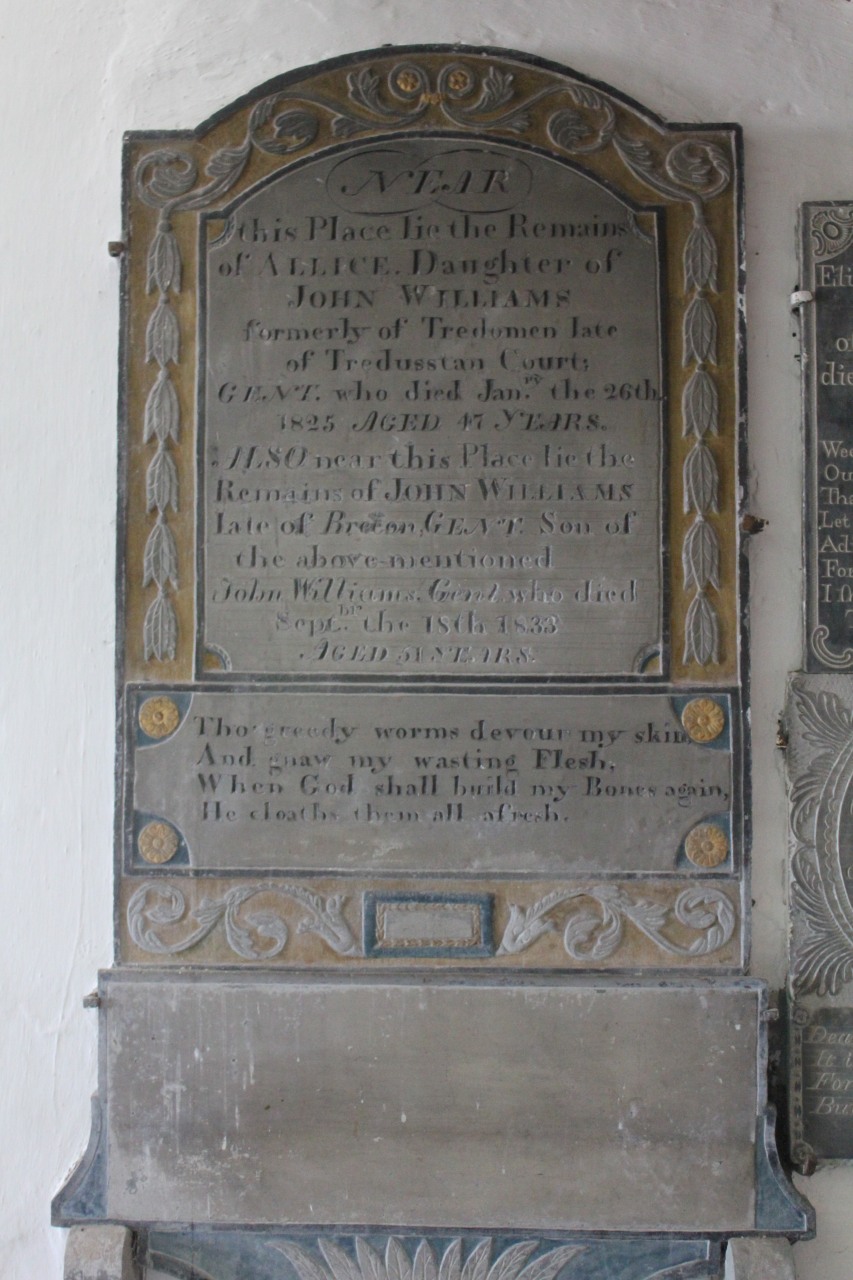 NEAR
this Place lie the Remains
of ALLICE. Daughter of
JOHN WILLIAMS
formerly of Tredomen late
of Tredusstan Court;
GENT. who died Jan.ry the 26th
1825 AGED 47 YEARS.
ALSO near this Place lie the
Remains of JOHN WILLIAMS
late of Brecon, GENT. Son of
the above-mentioned
John Williams. Gent. who died
Sept. the 18th 1833
AGED 51 YEARS.
Tho' greedy worms devour my skin,
And gnaw my wasting Flesh,
When God shall build my Bones again,
He cloaths them all afresh.